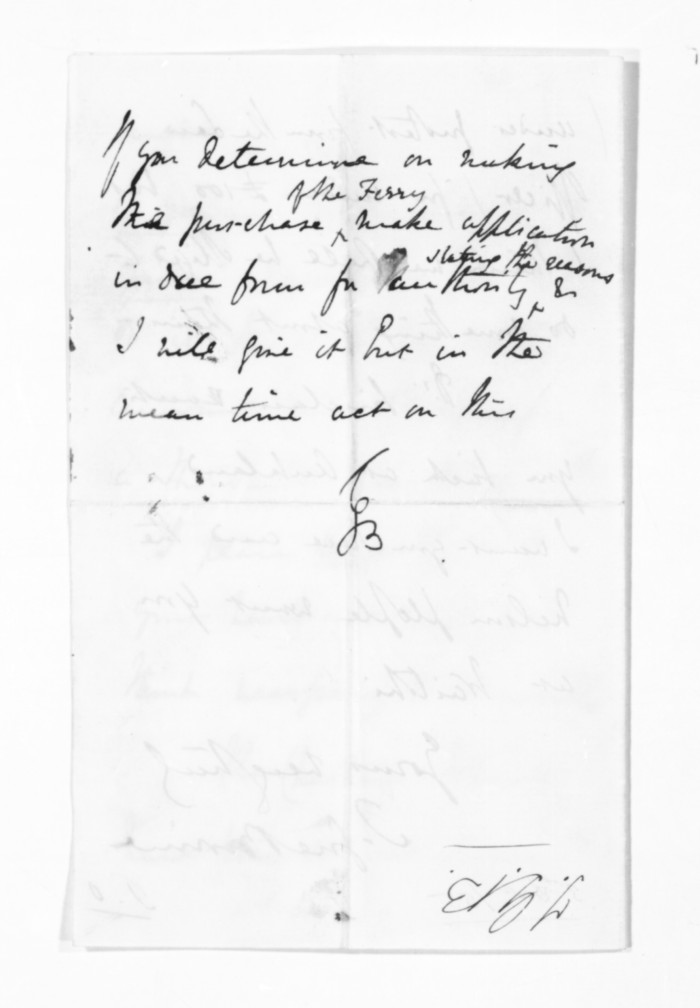 If you determine on making
of the Ferry
this purchase ‸ make application
stating the reasons
in due form for authority ‸ &
I will give it but in the
mean time act on this
JB